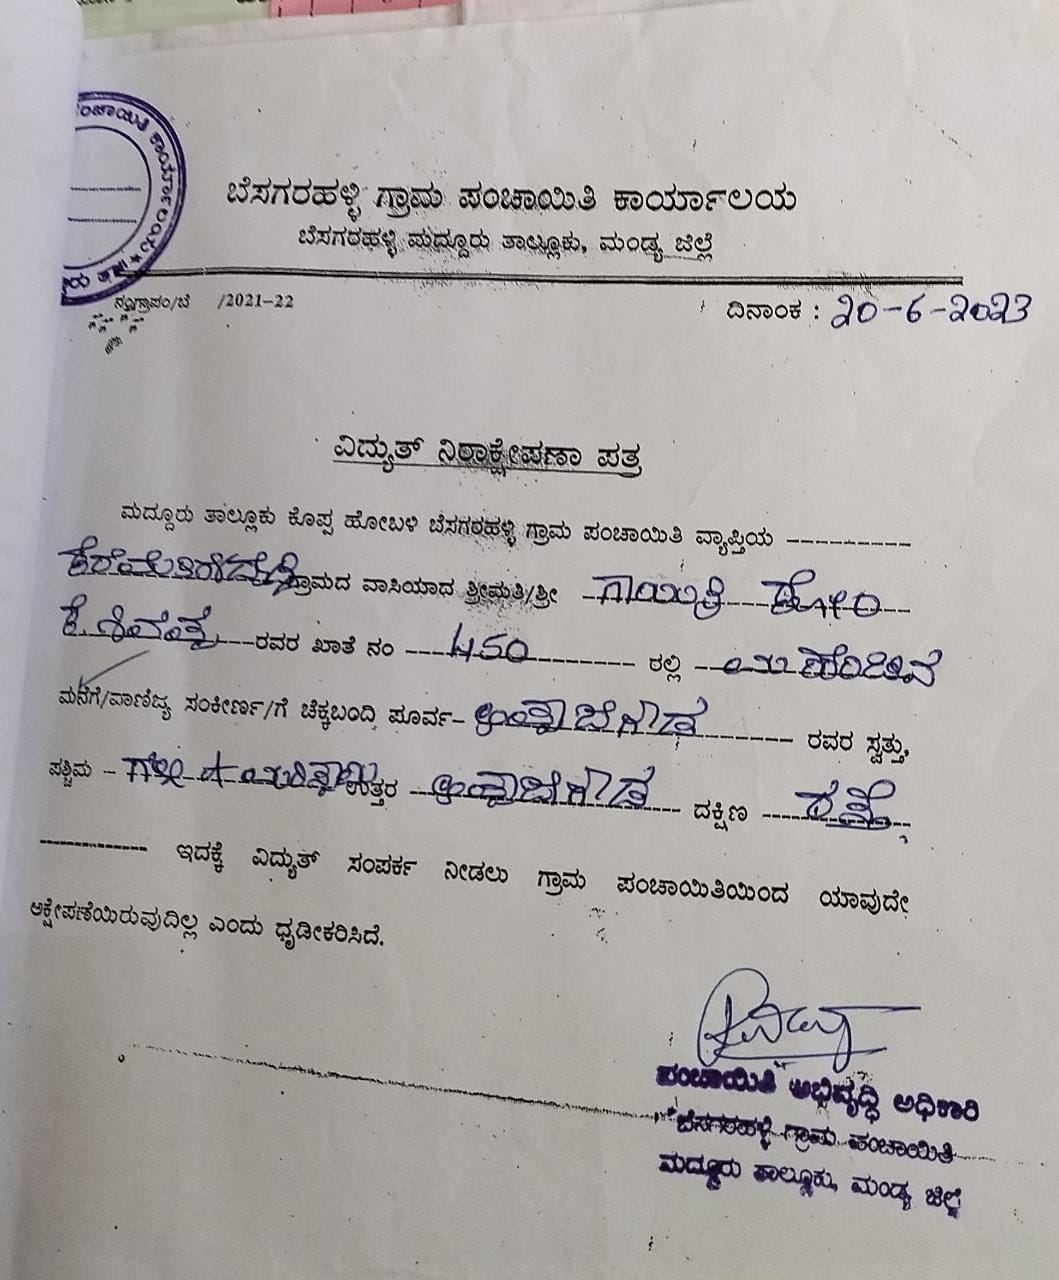 ಪಂಚಾಯಿತಿ ಕಾರ್ಯಾಲಯ
ಬೆಸಗರಹಳ್ಳಿ ಗ್ರಾಮ ಪಂಚಾಯಿತಿ ಕಾರ್ಯಾಲಯ
ಬೆಸಗರಹಳ್ಳಿ ಮದ್ದೂರು ತಾಲ್ಲೂಕು, ಮಂಡ್ಯ ಜಿಲ್ಲೆ
ನಂ/ಗ್ರಾಪಂ/ಬೆ /2021-22 ದಿನಾಂಕ : 20-6-2023
ವಿದ್ಯುತ್ ನಿರಾಕ್ಷೇಪಣಾ ಪತ್ರ
ಮದ್ದೂರು ತಾಲ್ಲೂಕು ಕೊಪ್ಪ ಹೋಬಳಿ ಬೆಸಗರಹಳ್ಳಿ ಗ್ರಾಮ ಪಂಚಾಯಿತಿ ವ್ಯಾಪ್ತಿಯ
ಗ್ರಾಮದ ವಾಸಿಯಾದ ಶ್ರೀಮತಿ/ಶ್ರೀ ಗಾಯಿತ್ರಿ ಕೋಂ
ರವರ ಖಾತೆ ನಂ 450 ರಲ್ಲಿ
ಮನೆಗೆ/ವಾಣಿಜ್ಯ ಸಂಕೀರ್ಣ/ಗೆ ಚೆಕ್ಕಬಂದಿ ಪೂರ್ವ- ರವರ ಸ್ವತ್ತು,
ಪಶ್ಚಿಮ - ಉತ್ತರ ದಕ್ಷಿಣ ರಸ್ತೆ
ಇದಕ್ಕೆ ವಿದ್ಯುತ್ ಸಂಪರ್ಕ ನೀಡಲು ಗ್ರಾಮ ಪಂಚಾಯಿತಿಯಿಂದ ಯಾವುದೇ
ಆಕ್ಷೇಪಣೆಯಿರುವುದಿಲ್ಲ ಎಂದು ಧೃಡೀಕರಿಸಿದೆ.
ಪಂಚಾಯಿತಿ ಅಭಿವೃದ್ಧಿ ಅಧಿಕಾರಿ
ಬೆಸಗರಹಳ್ಳಿ ಗ್ರಾಮ ಪಂಚಾಯಿತಿ
ಮದ್ದೂರು ತಾಲ್ಲೂಕು, ಮಂಡ್ಯ ಜಿಲ್ಲೆ